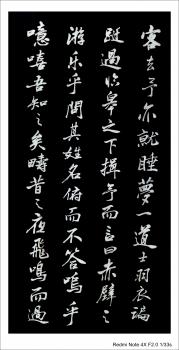 客去予亦就睡夢一道士羽衣蹁
躚過临皋之下揖予而言曰赤壁之
游乐乎問其姓名俯而不答嗚乎
噫嘻吾知之矣疇昔之夜飛鳴而過
Redmi Note 4X F2.0 1/33s